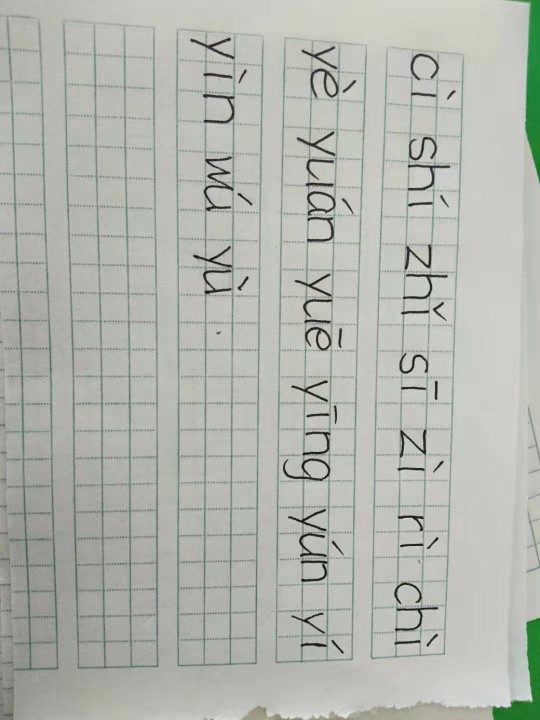 cì shí zhǐ sī zì rì chì
yè yuán yuē yīng yún yí
yìn wú yù